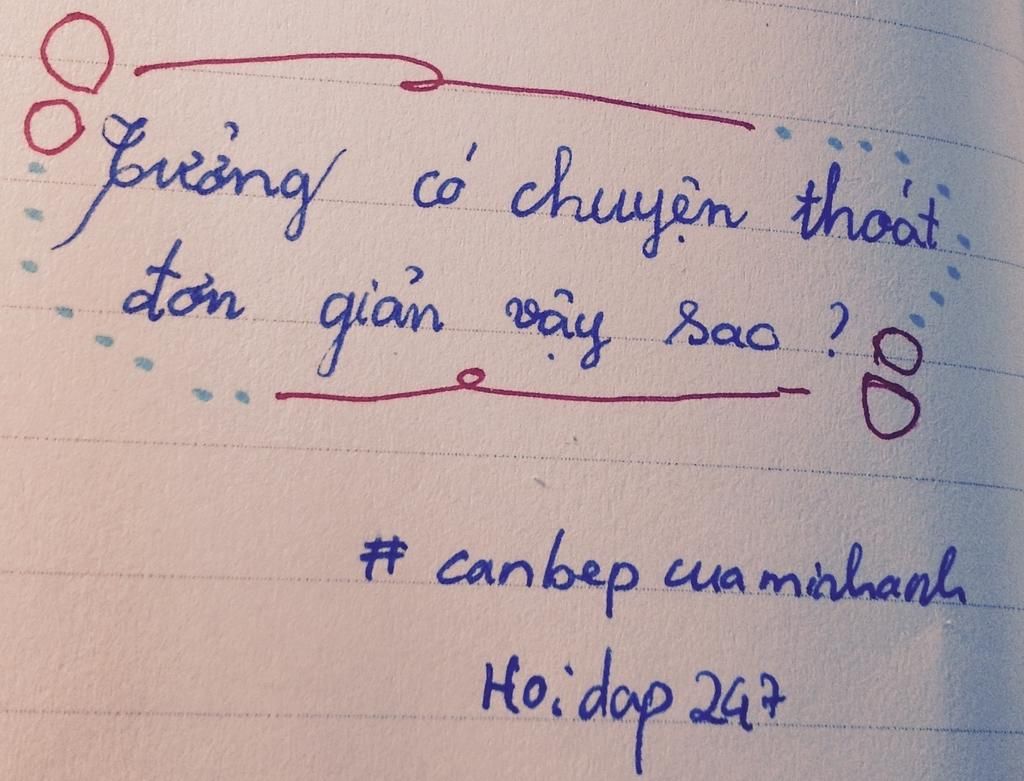 Tưởng có chuyện thoát
đơn giản vậy sao ?
# canbepcuaminhanh
Hoidap247